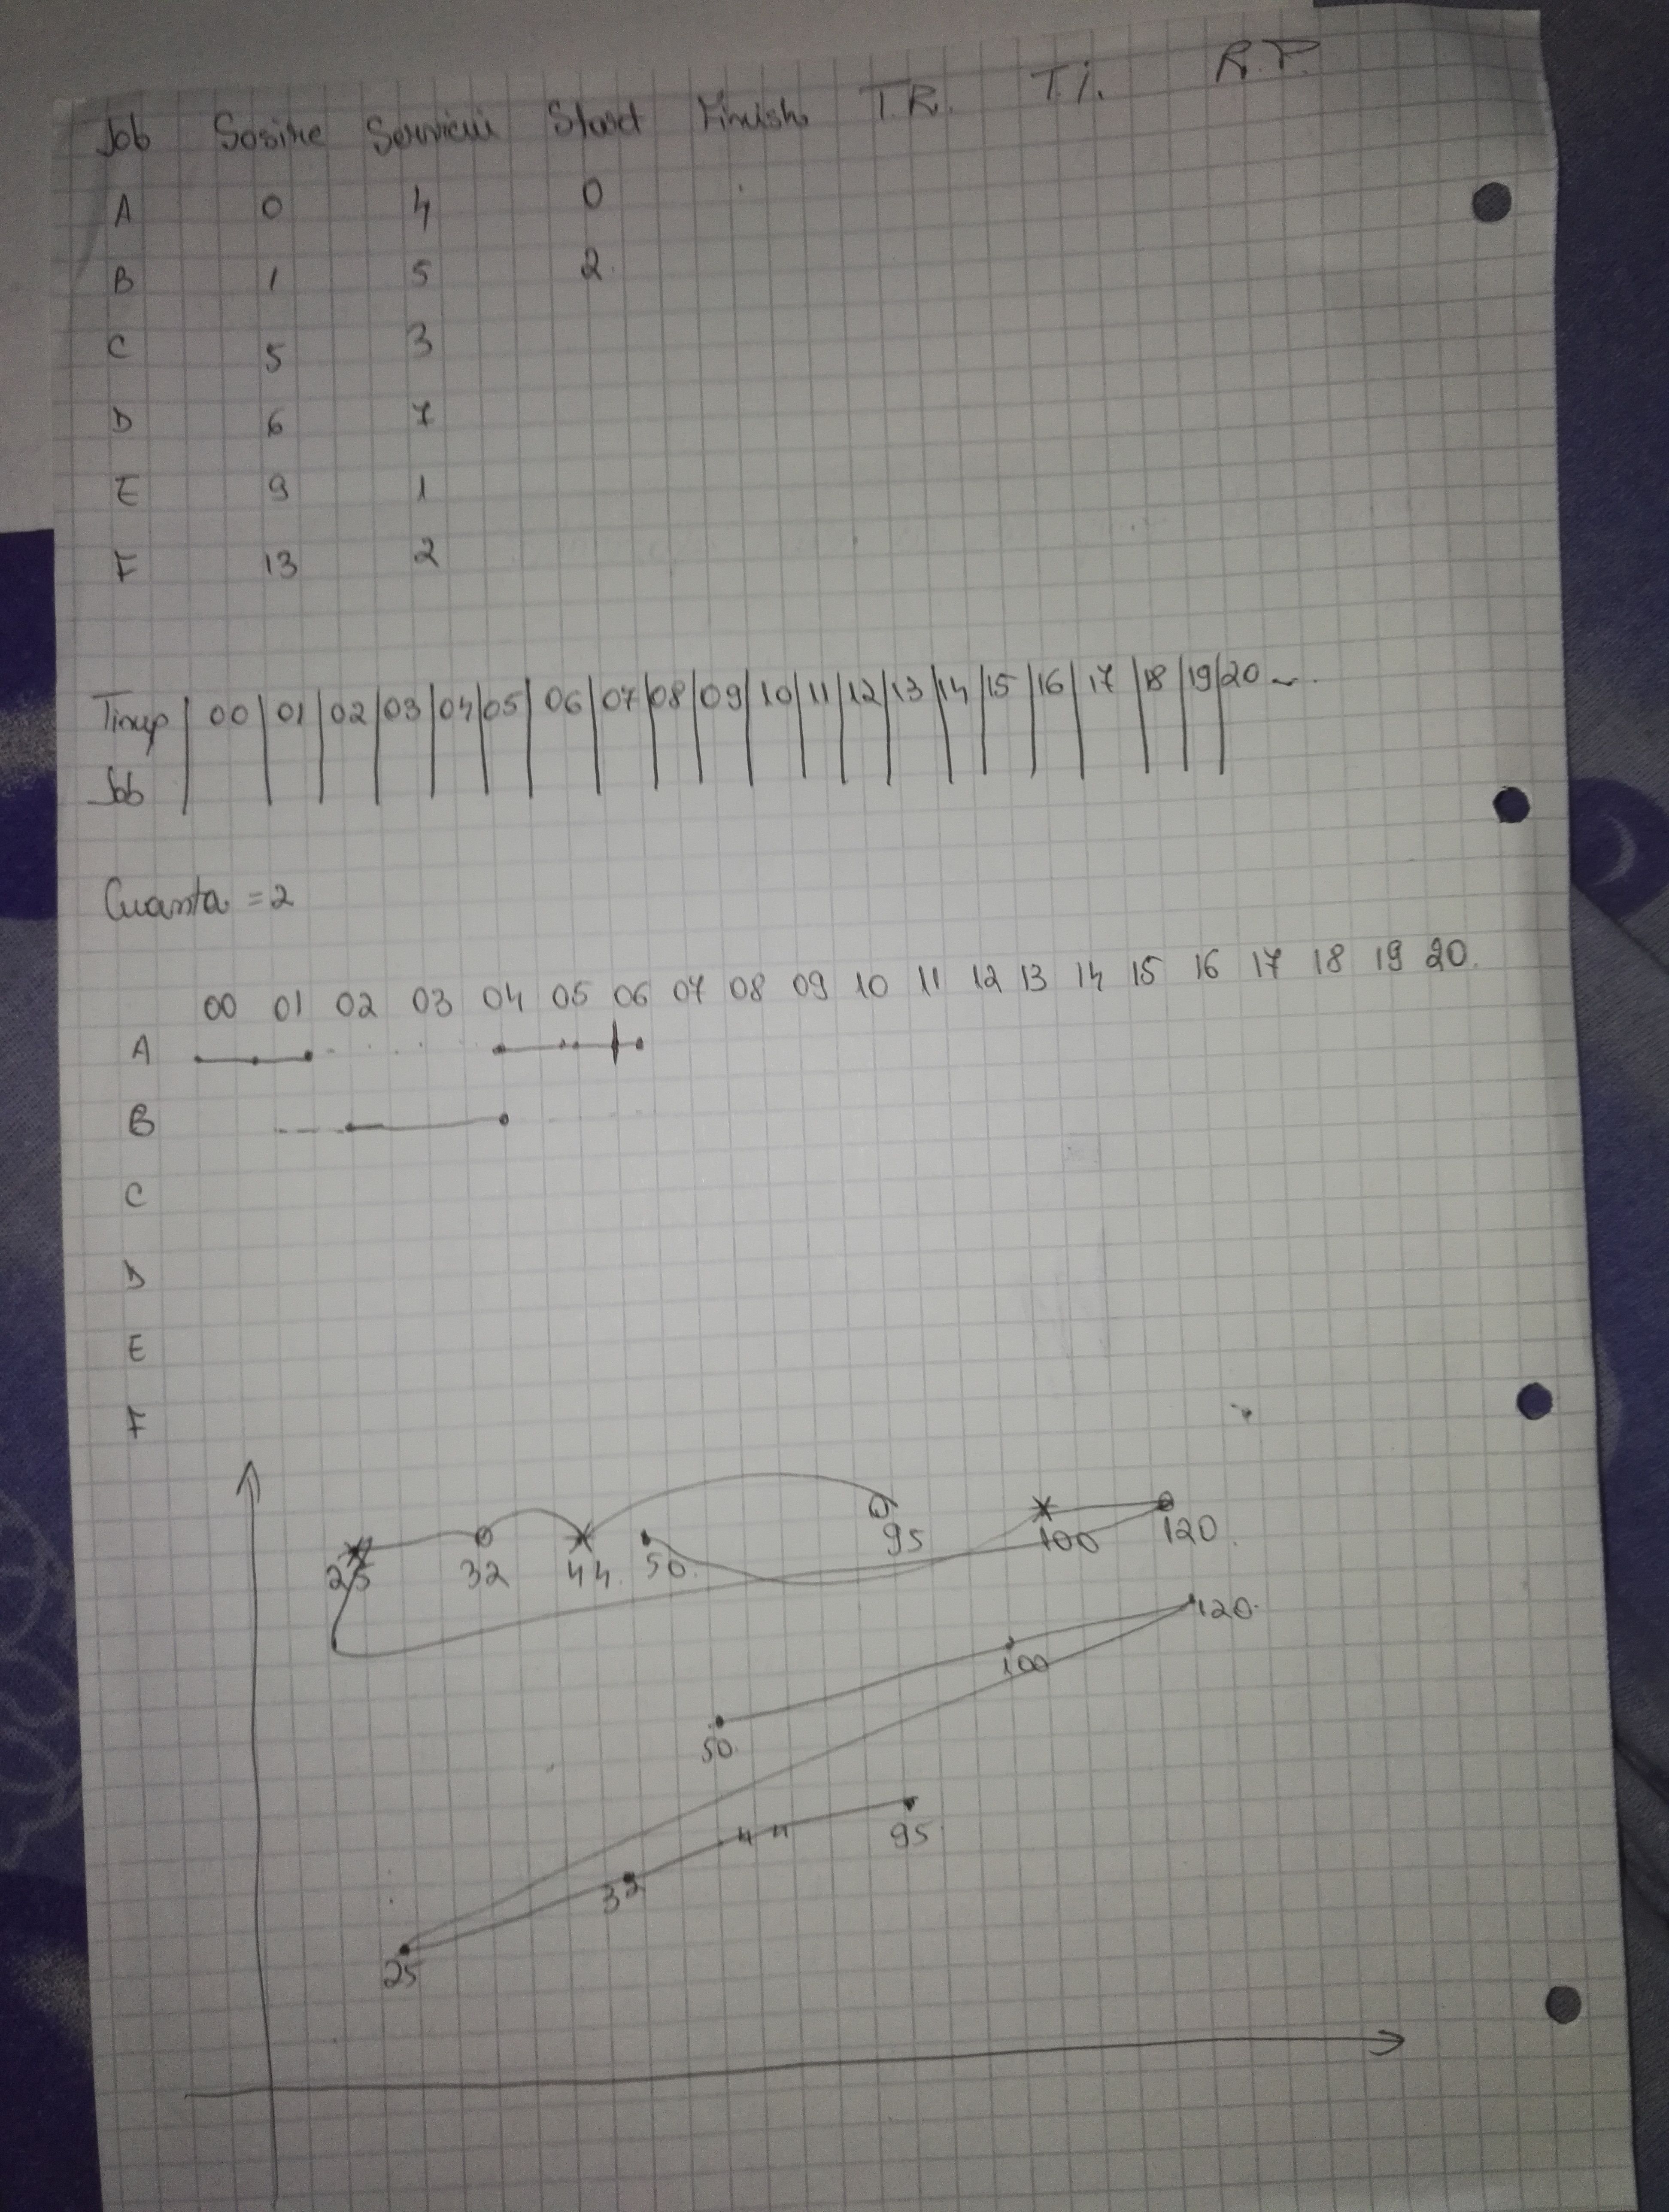 Job Sosire Servicii Start Finish T.R. T.i. R.P.
A 0 4 0
B 1 5 2
C 5 3
D 6 7
E 9 1
F 13 2
Timp 00 01 02 03 04 05 06 07 08 09 10 11 12 13 14 15 16 17 18 19 20
Job
Cuanta = 2
00 01 02 03 04 05 06 07 08 09 10 11 12 13 14 15 16 17 18 19 20
A
B
C
D
E
F
25 32 44 50 95 100 120
120
100
50
44 95
32
25